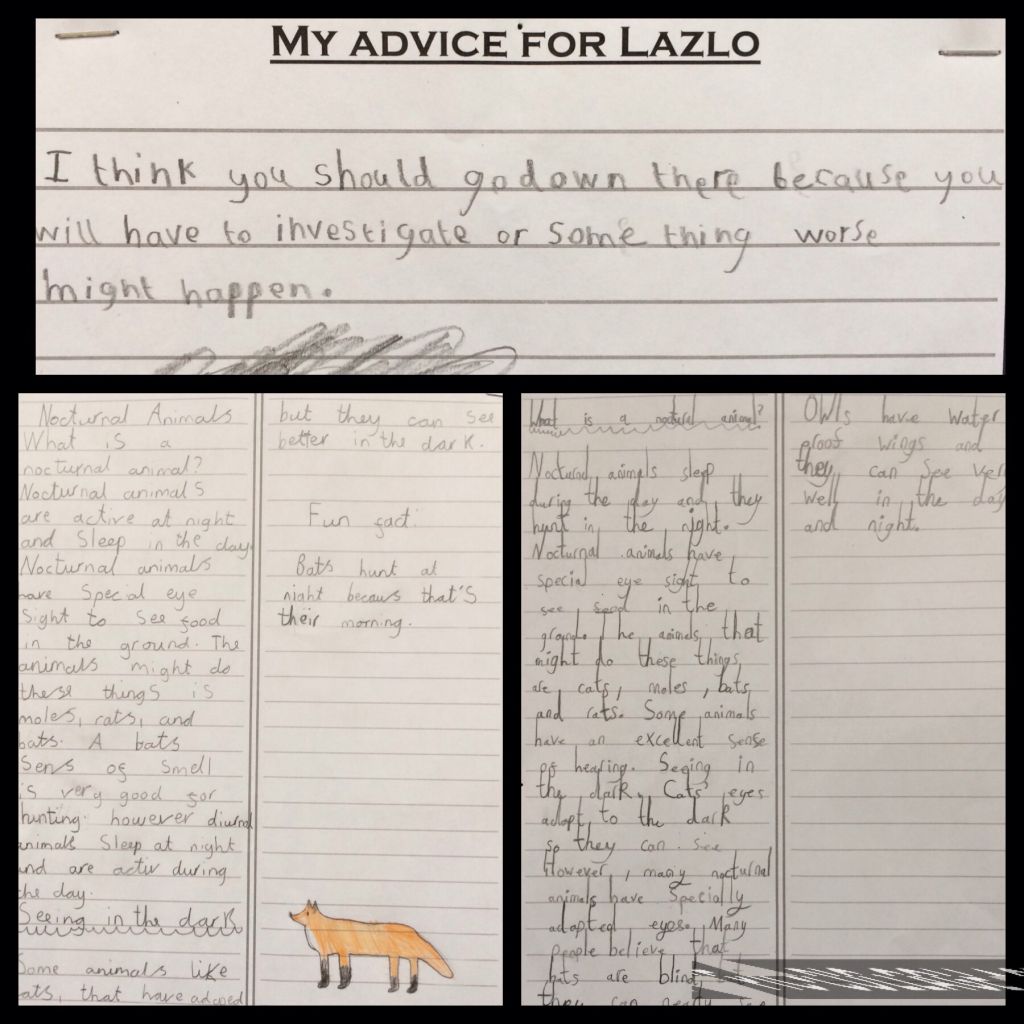 MY ADVICE FOR LAZLO
I think you should go down there because you
will have to investigate or some thing worse
might happen.
Nocturnal Animals
What is a
nocturnal animal?
Nocturnal animals
are active at night
and Sleep in the day.
Nocturnal animals
have Special eye
Sight to See food
in the ground. The
animals might do
these things is
moles, rats, and
bats. A bats
Sens of Smell
is very good for
hunting. however diurnal
animals Sleep at night
and are activ during
the day.
Seeing in the dark
Some animals like
that have
but they can see
better in the dark.
Fun fact:
Bats hunt at
night becaus that's
their morning.
What is a animal?
Nocturnal animals sleep
during the day and they
hunt in the night.
Nocturnal animals have
special eye sight to
see food in the
ground. The animals that
might do these things
are, cats, moles, bats,
and rats. Some animals
have an excellent sense
of hearing. Seeing in
the dark. Cats' eyes
adapt to the dark
so they can see.
However, many nocturnal
animals have Specially
adapted eyes. Many
people believe that
bats are blind,
they can
Owls have water
proof wings and
they can see very
well in the day
and night.